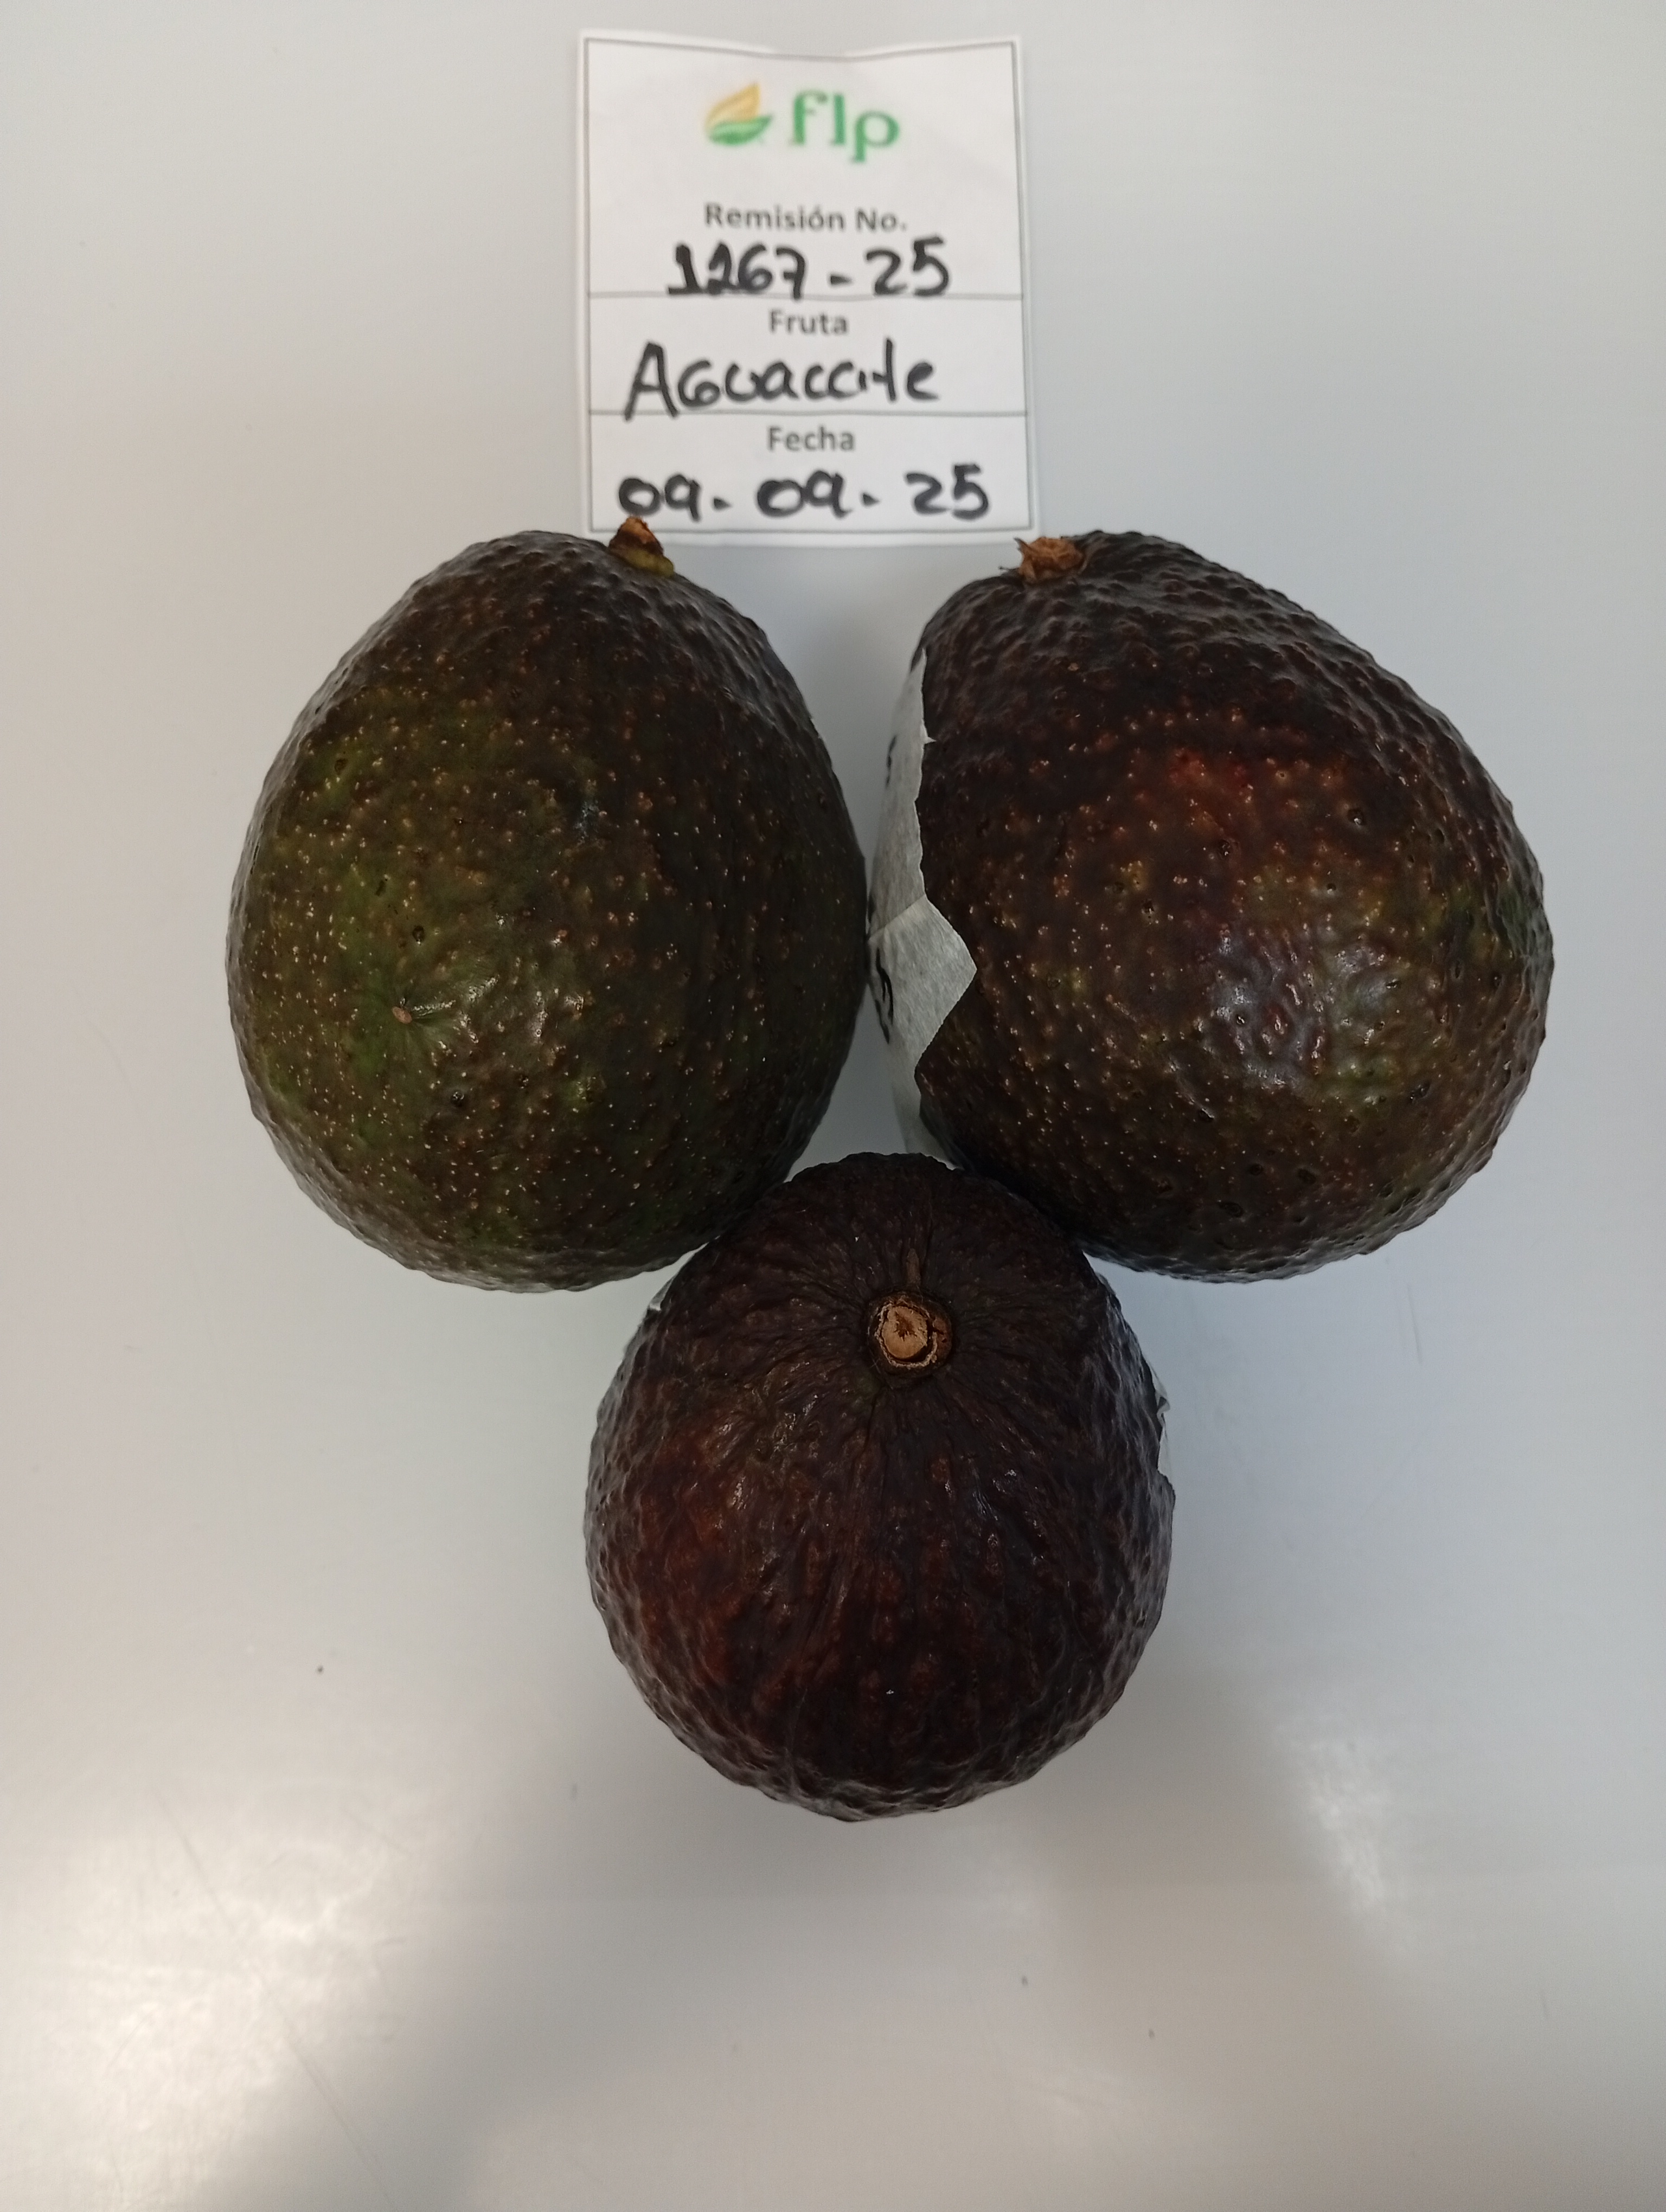 flp
Remisión No.
1267-25
Fruta
Aguacate
Fecha
09-09-25